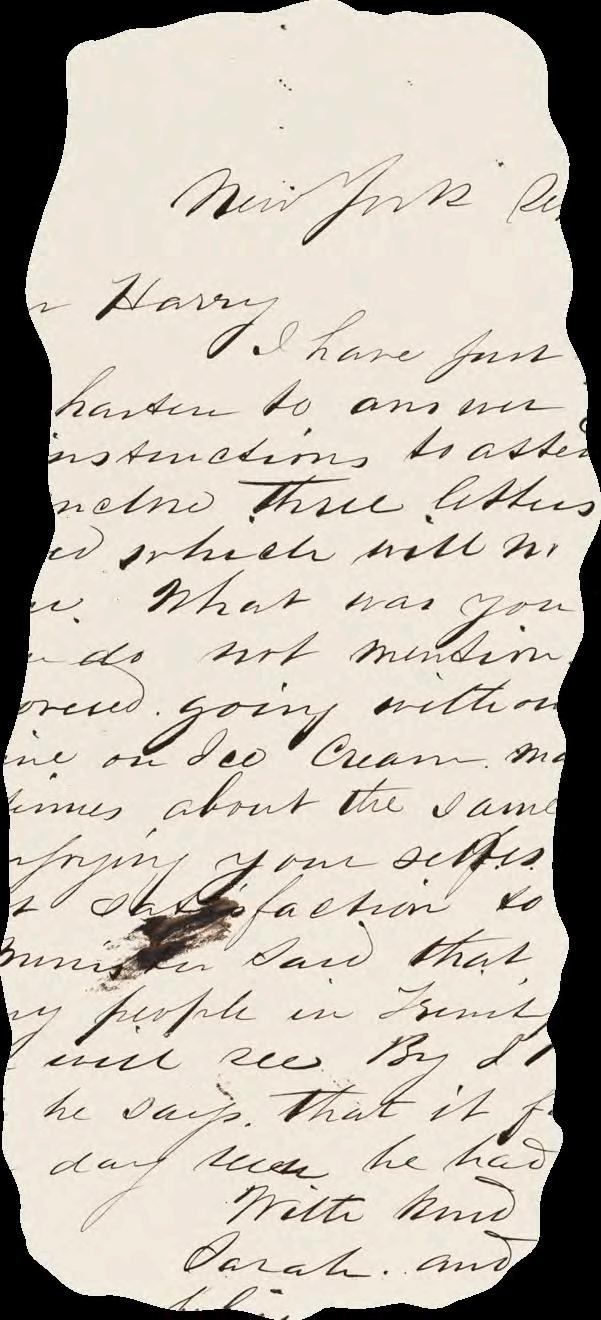 New York Se
r Harry
I have just
hasten to answer
instructions to atte
nclose three letters
ed which will
What was you
u do not mention
going withou
ive on Ice Cream. ma
times about the same
njoying your selfes.
t satisfaction to
minister said that
ny people in Trinit
will see By
he says. that it f
day he had
With kind
Sarah. and